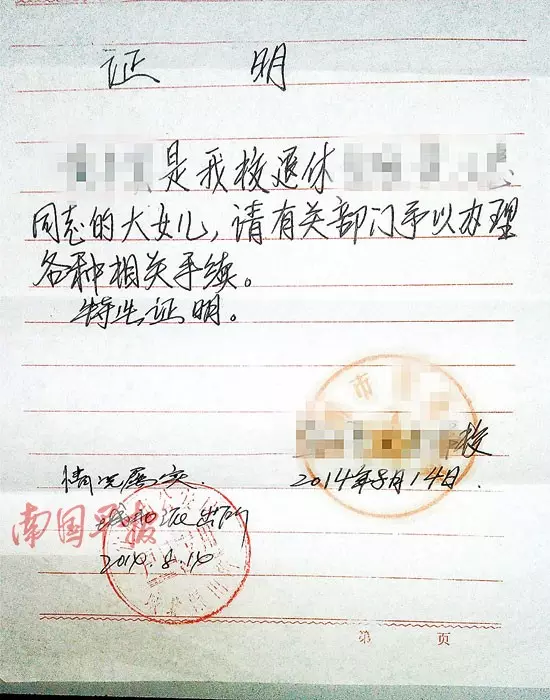 证 明
是我校退休
同志的大女儿，请有关部门予以办理
各种相关手续。
特此证明。
市
校
2014年8月14日.
情况属实.
南国早报
派出所
第 页